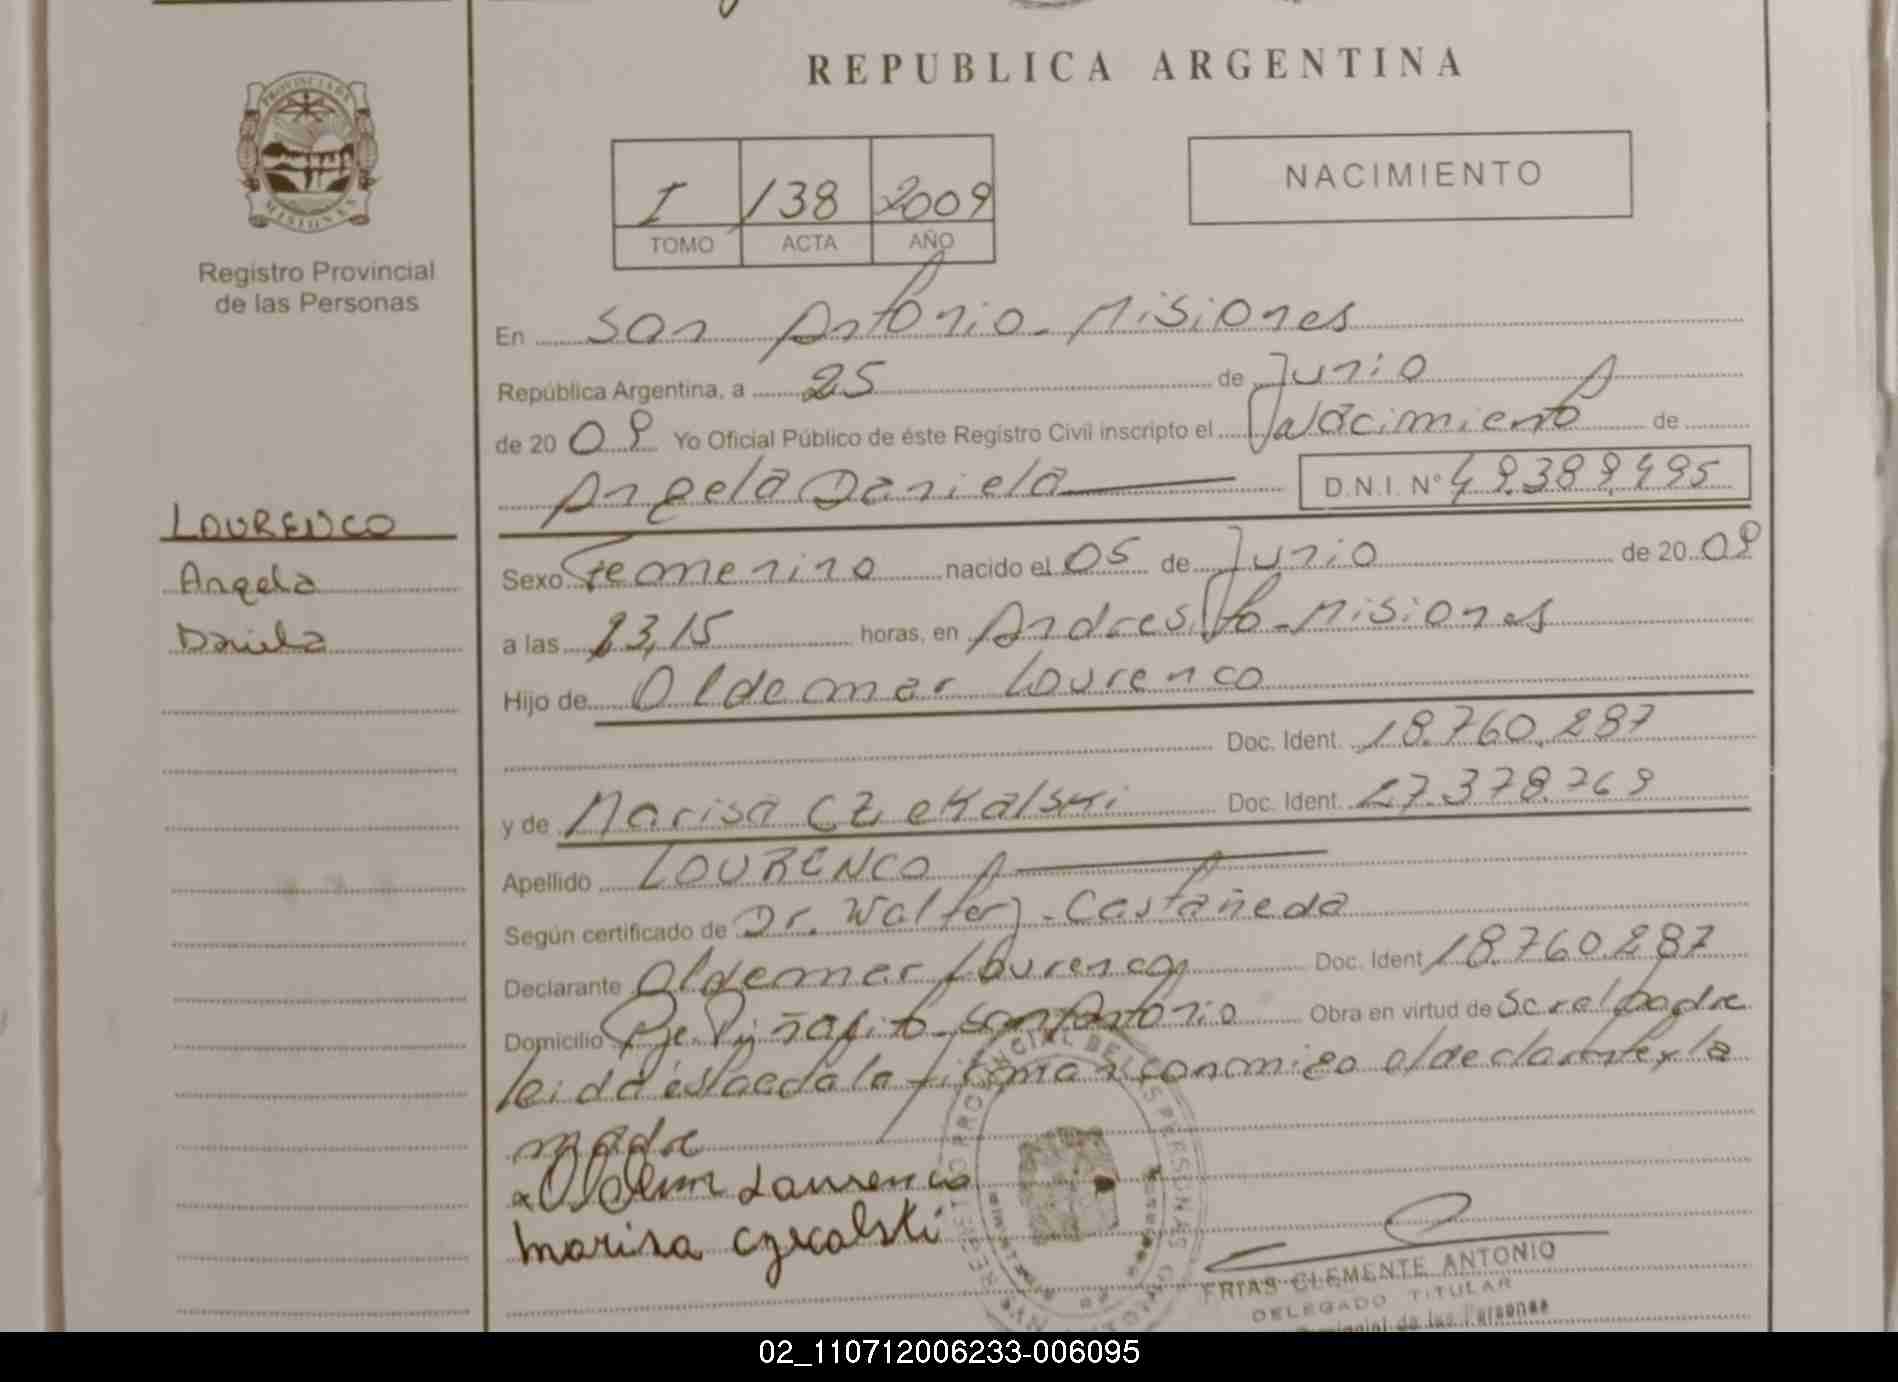 REPUBLICA ARGENTINA
PROVINCIA DE
MISIONES
Registro Provincial
de las Personas
I 138 2009
TOMO ACTA AÑO
NACIMIENTO
LOURENCO
Angela
Daniela
En San Antonio - Misiones
República Argentina, a 25 de Junio
de 2009 Yo Oficial Público de éste Registro Civil inscripto el Nacimiento de
Angela Daniela D.N.I. Nº 49.389.495
Sexo Femenino nacido el 05 de Junio de 2009
a las 13,15 horas, en Andresito - Misiones
Hijo de Oldemar Lourenco
Doc. Ident. 18.760.287
y de Marisa Czekalski Doc. Ident. 27.378.769
Apellido LOURENCO
Según certificado de Dr. Walter J. Castañeda
Declarante Oldemar Lourenco Doc. Ident 18.760.287
Domicilio Pje. Piñalito - San Antonio Obra en virtud de Ser el padre
leida esta acta la firman conmigo el declarante y la
madre
Lourenco
Marisa Czekalski
FRIAS CLEMENTE ANTONIO
DELEGADO TITULAR
Provincial de las Personas
02_110712006233-006095